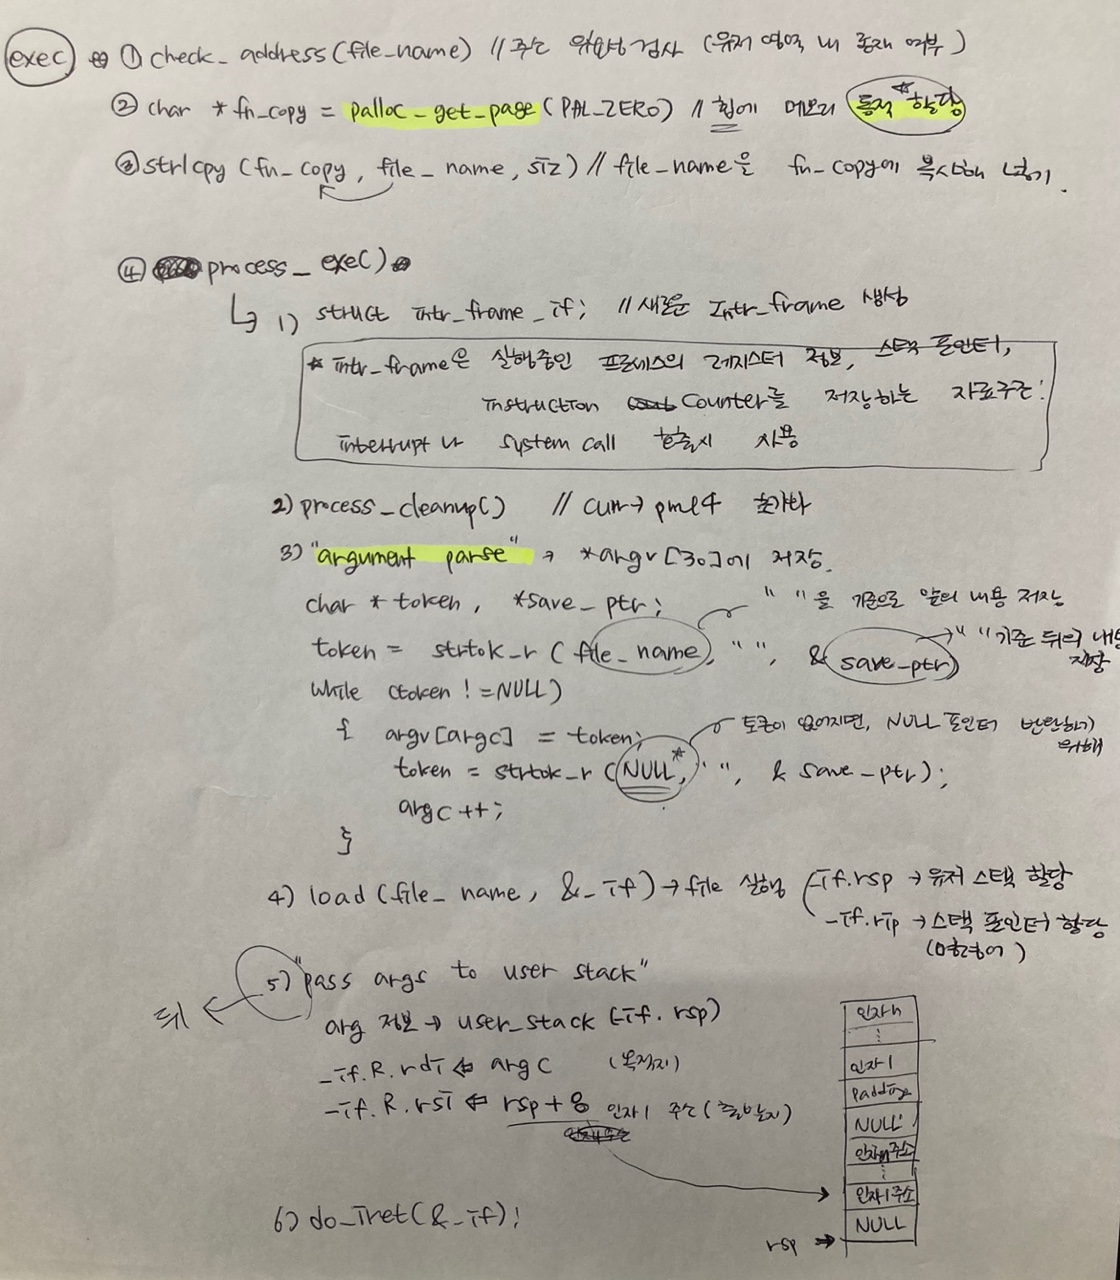 exec ① check_address(file_name) // 주소 위양성 검사 (유저 영역 내 존재 여부)
② char *fn_copy = palloc_get_page(PAL_ZERO) // 힙에 메모리 동적* 할당
③ strlcpy (fn_copy, file_name, siz) // file_name을 fn_copy에 복사해 넣기.
④ process_exec()
↳ 1) struct intr_frame _if; // 새로운 Intr_frame 생성
* intr_frame은 실행중인 프로세스의 레지스터 정보, 스택 포인터,
instruction Counter를 저장하는 자료구조!
interrupt나 system call 호출시 사용
2) process_cleanup() // curr→pml4
3) "argument parse" → *argv[30]에 저장.
char *token, *save_ptr;
" "을 기준으로 앞의 내용 저장
token = strtok_r (file_name, " ", &save_ptr)
" "기준 뒤의 내용 저장
while (token != NULL)
{ argv[argc] = token;
토큰이 없어지면, NULL 포인터 반환하기 위해
token = strtok_r (NULL*, " ", & save_ptr);
argc++;
}
4) load (file_name, &_if) → file 실행
_if.rsp → 유저 스택 할당
_if.rip → 스택 포인터 할당
(명령어)
5) "pass args to user stack"
뒤 ←
arg 정보 → user_stack (_if.rsp)
_if.R.rdi ⇐ argc (목적지)
_if.R.rsi ⇐ rsp+8 인자1 주소 (출발지)
6) do_iret(&_if);
인자n
⋮
인자1
padding
NULL
인자n주소
⋮
인자1주소
NULL
rsp →